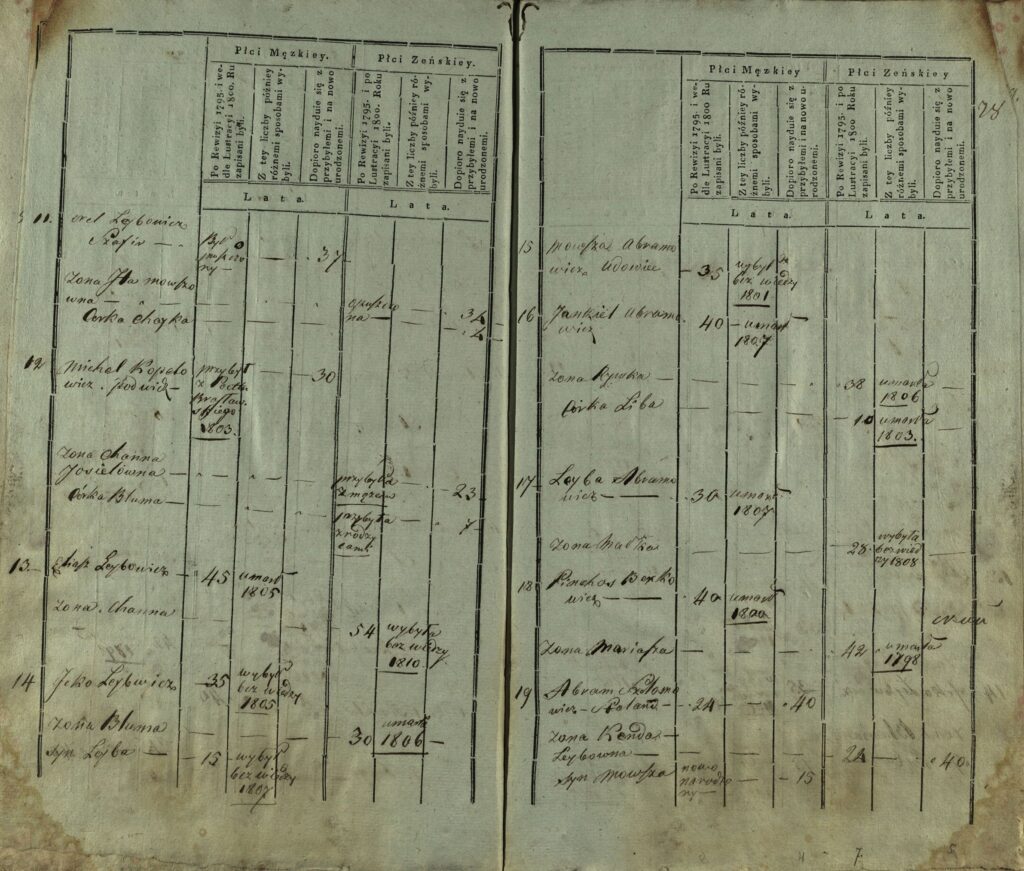 Płci Męzkiey.
Płci Zeńskiey.
Po Rewizyi 1795. i we-
dle Lustracyi 1800. Ru
zapisani byli.
Z tey liczby późniey
róźnemi sposobami wy-
byli.
Dopioro nayduie się z
przybyłemi i na nowo
urodzonemi.
Po Rewizyi 1795. i po
Lustracyi 1800. Roku
zapisani byli.
Z tey liczby późniey ró-
źnemi sposobami wy-
byli.
Dopioro nayduie się z
przybyłemi i na nowo
urodzonemi.
Lata.
Lata.
11. orel Leybowicz
Szafir — Był opuszczo
ny — — 37
Zona Ita mowszo
wna — opuszczo
na — — 34
Corka Chayka — — — — 4
12 Michel
wicz przybył
z
Brasław-
skiego
1803. — 30
Zona Channa
Josielowna — przybyła
z mężem — 23
Córka Bluma — przybyła
z rodzy
cami — 7
13 — Leybowicz — 45 umarł
1805
Zona Channa
— 54 wybyła
bez wiedzy
1810
14 Icko Leybowicz — 35 wybył
bez wiedzy
1805
Zona Bluma — 30 umarła
1806 —
syn Leyba — 15 — wybył
bez wiedzy
1807
28
Płci Męzkiey
Płci Zeńskiey
Po Rewizyi 1795. i we-
dle Lustracyi 1800 Ru
zapisani byli.
Z tey liczby późniey ró-
źnemi sposobami wy-
byli.
Dopioro nayduie się z
przybyłemi i na nowo u-
rodzonemi.
Po Rewizyi 1795. i po
Lustracyi 1800 Roku
zapisani byli.
Z tey liczby późniey
róźnemi sposobami wy-
byli.
Dopioro nayduie się z
przybyłemi i na nowo
urodzonemi.
Lata.
Lata.
15 Mowsza Abramo
wicz Udowiec — 35 wybył
bez wiedzy
1801
16 Jankiel Abramo
wicz 40 — umarł
1807
Zona — 38 umarła
1806
Córka Liba — 10 umarła
1803.
17 Leyba Abramo
wicz — 30 umarł
1807
Zona Malka — 28 wybyła
bez wied
zy 1808
18 Pinchos Berko
wicz — 40 umarł
1800
Zona Mariasza — 42 umarła
1798
19 Abram Szlomo
wicz — — 24 — 40
Zona Kenda —
Leybowna — 24 — 40
syn Mowsza nowo
narodzo
ny — — 15
7 5